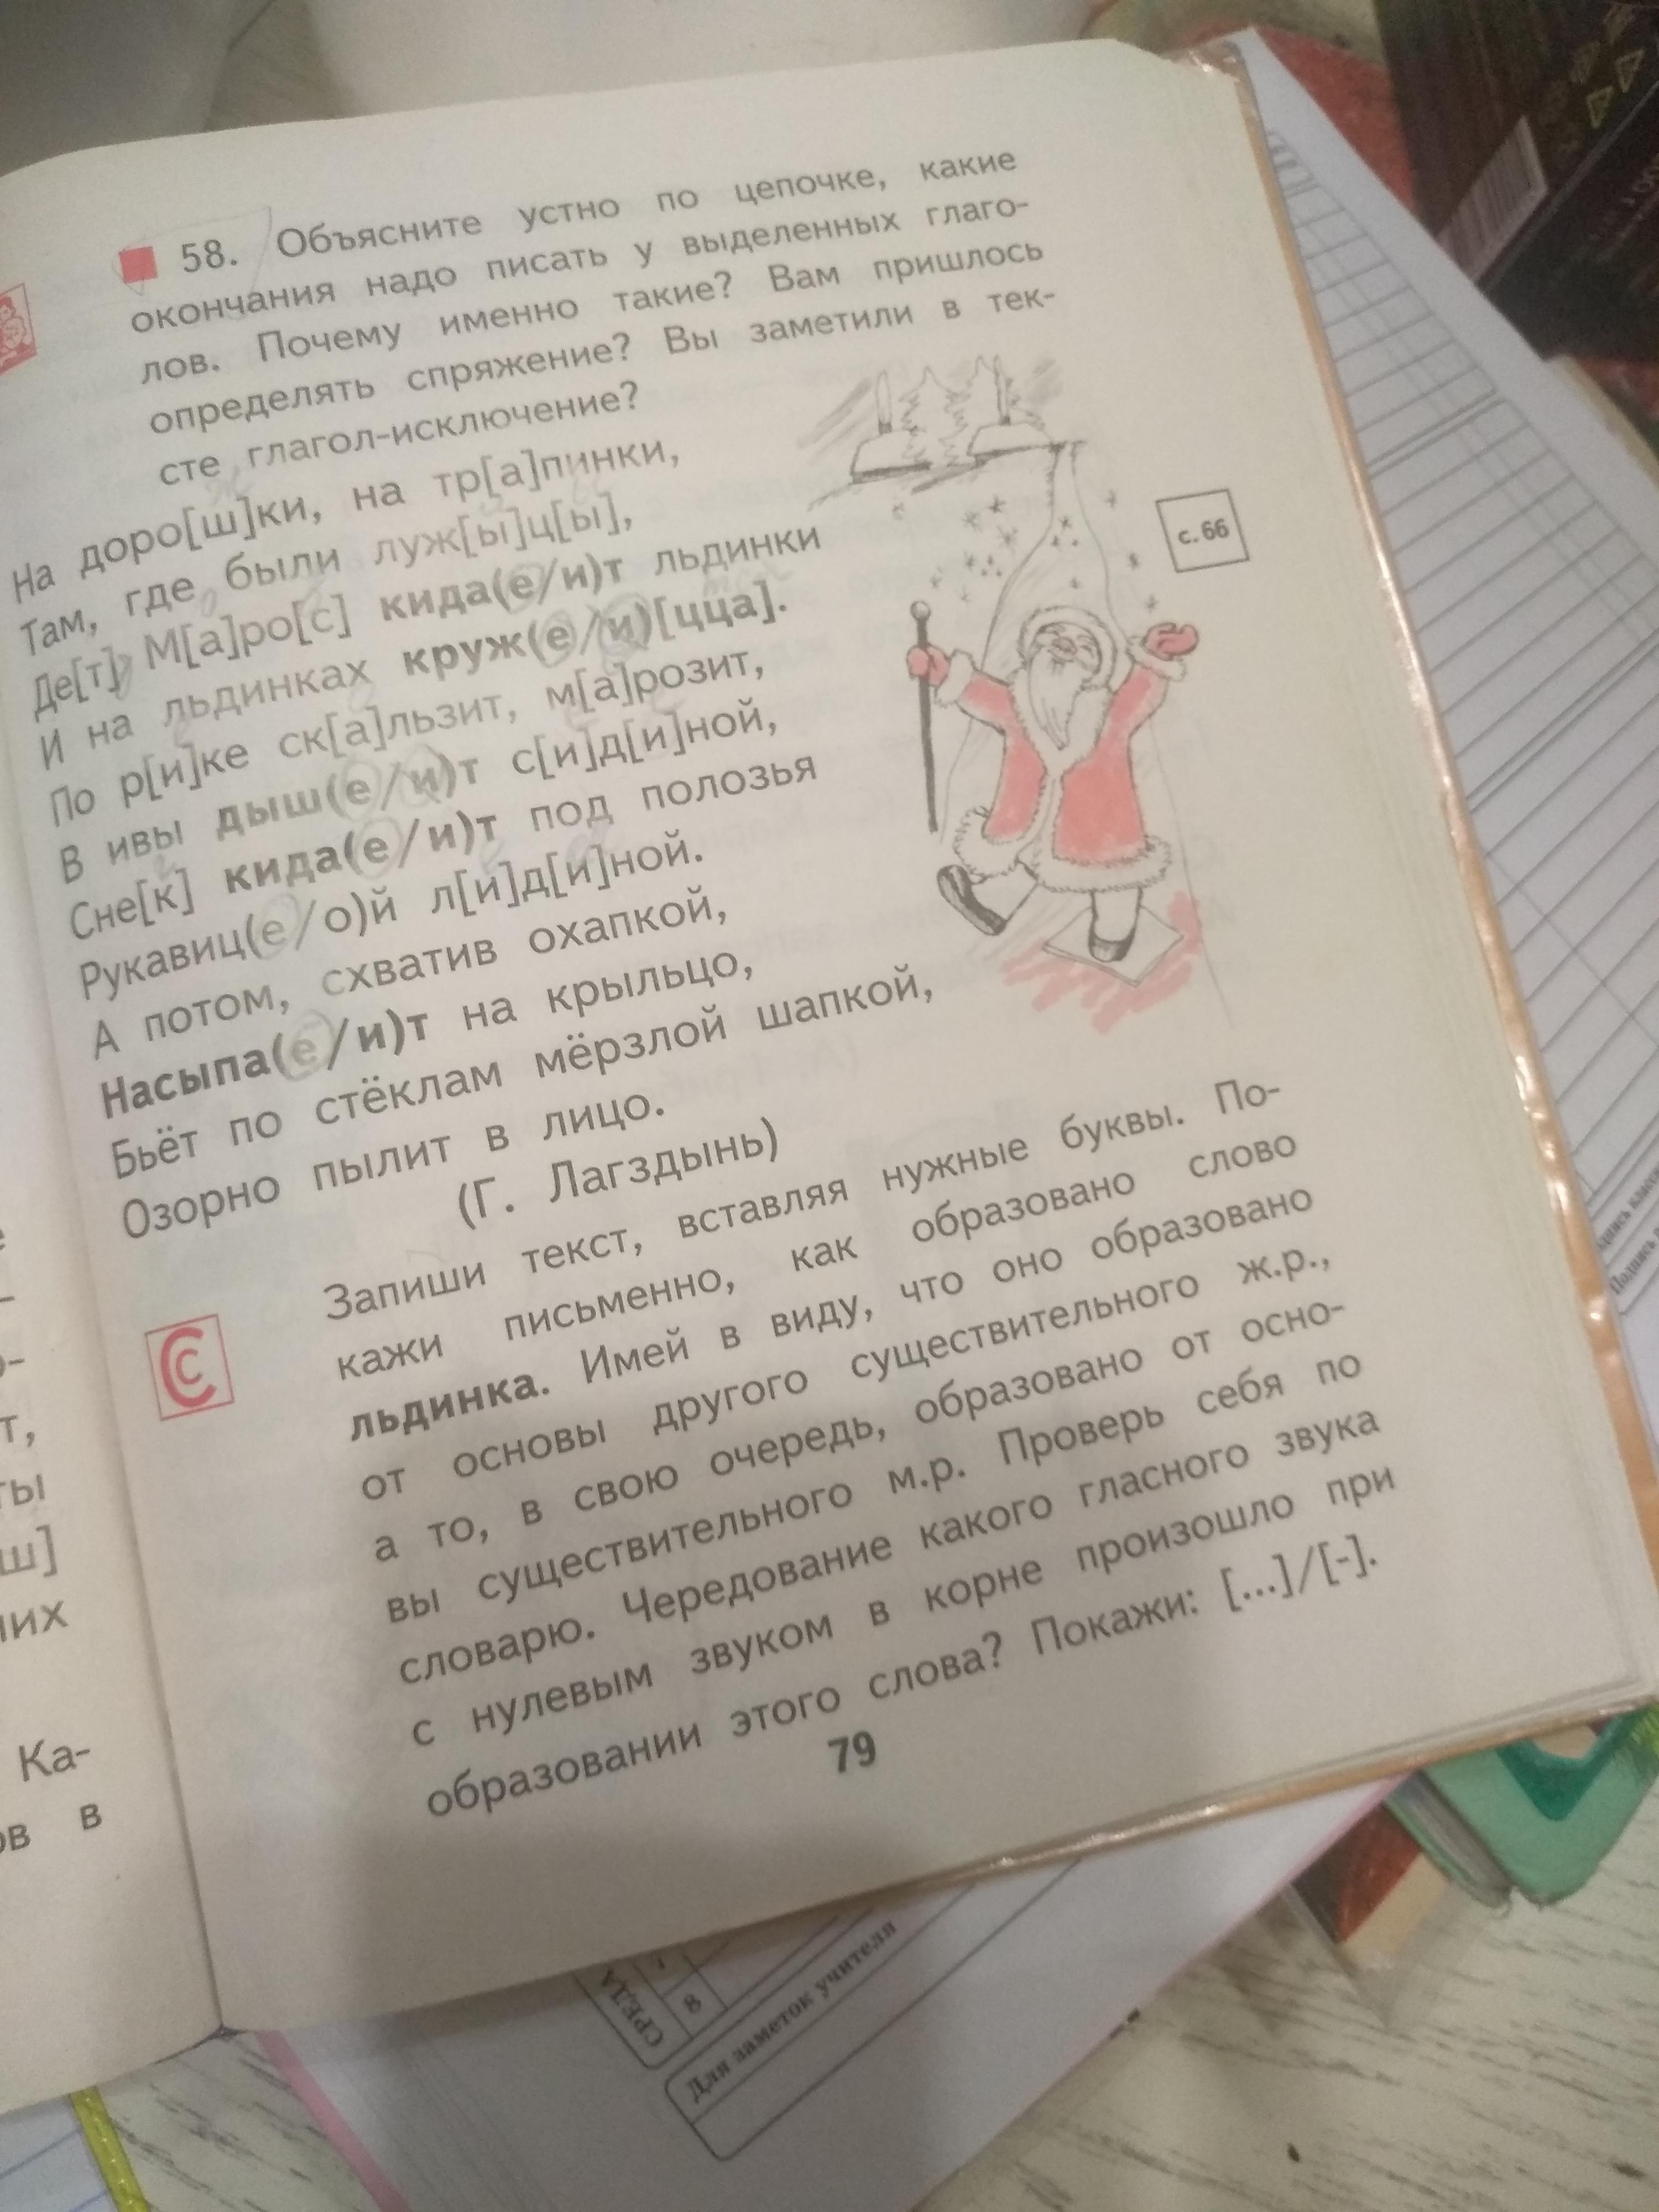 58. Объясните устно по цепочке, какие
окончания надо писать у выделенных глаго-
лов. Почему именно такие? Вам пришлось
определять спряжение? Вы заметили в тек-
сте глагол-исключение?
На доро[ш]ки, на тр[а]пинки,
Там, где были луж[ы]ц[ы],
Де[т] М[а]ро[с] кида(е/и)т льдинки
И на льдинках круж(е/и)[цца].
По р[и]ке ск[а]льзит, м[а]розит,
В ивы дыш(е/и)т с[и]д[и]ной,
Сне[к] кида(е/и)т под полозья
Рукавиц(е/о)й л[и]д[и]ной.
А потом, схватив охапкой,
Насыпа(е/и)т на крыльцо,
Бьёт по стёклам мёрзлой шапкой,
Озорно пылит в лицо.
(Г. Лагздынь)
с. 66
С
Запиши текст, вставляя нужные буквы. По-
кажи письменно, как образовано слово
льдинка. Имей в виду, что оно образовано
от основы другого существительного ж.р.,
а то, в свою очередь, образовано от осно-
вы существительного м.р. Проверь себя по
словарю. Чередование какого гласного звука
с нулевым звуком в корне произошло при
образовании этого слова? Покажи: [...]/[-].
79
т,
ты
ш]
них
Ка-
ов в
СРЕДА
8
Для заметок учителя